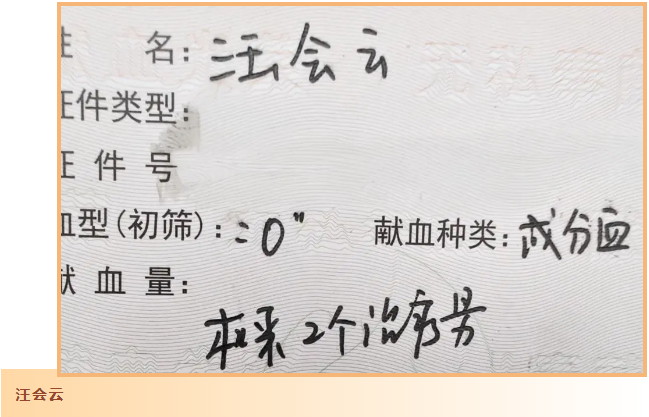 姓 名：汪会云
证件类型：
证 件 号
血型(初筛)："O" 献血种类：成分血
献 血 量：
机采2个治疗量
汪会云